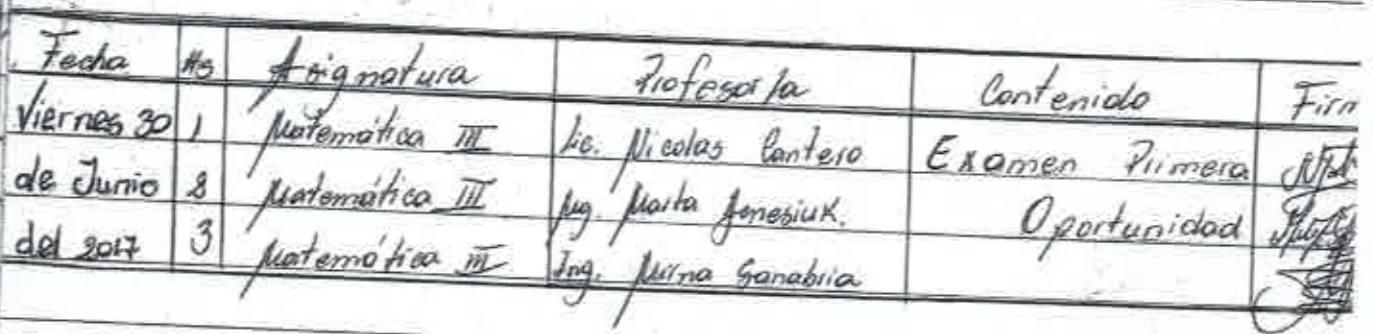 Fecha Hs Asignatura Profesor/a Contenido Firm
Viernes 30 1 Matemática III Lic. Nicolas Cantero Examen Primera
de Junio 2 Matemática III Mg. Marta Oportunidad
del 2017 3 Matemática III Ing. Mirna Sanabria